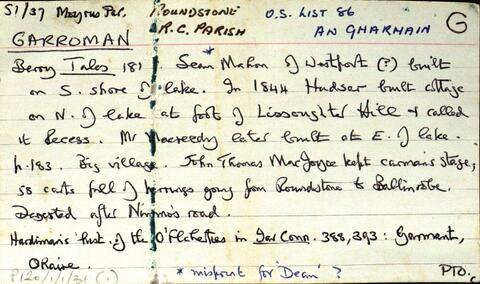 S1/37 Moyrus Par. ROUNDSTONE O.S. LIST 86 G
GARROMAN R.C. PARISH AN GHARMAIN
Berry Tales 181 *Sean Mahon of Westport (?) built
on S. shore of lake. In 1844 Hudser built cottage
on N. of lake at foot of Lissoughter Hill & called
it Recess. Mr Macreedy later built at E. of lake.
p. 183. Big village. John Thomas MacJoyce kept carman's stage,
58 carts full of herrings going from Roundstone to Ballinrobe.
Deserted after Nimmo's road.
Hardiman's hist. of the O'Flaherties in Iar Conn. 388, 393: Garomant,
ORaine.
P120/1/1/31 (1) * misprint for 'Dean' ? PTO.